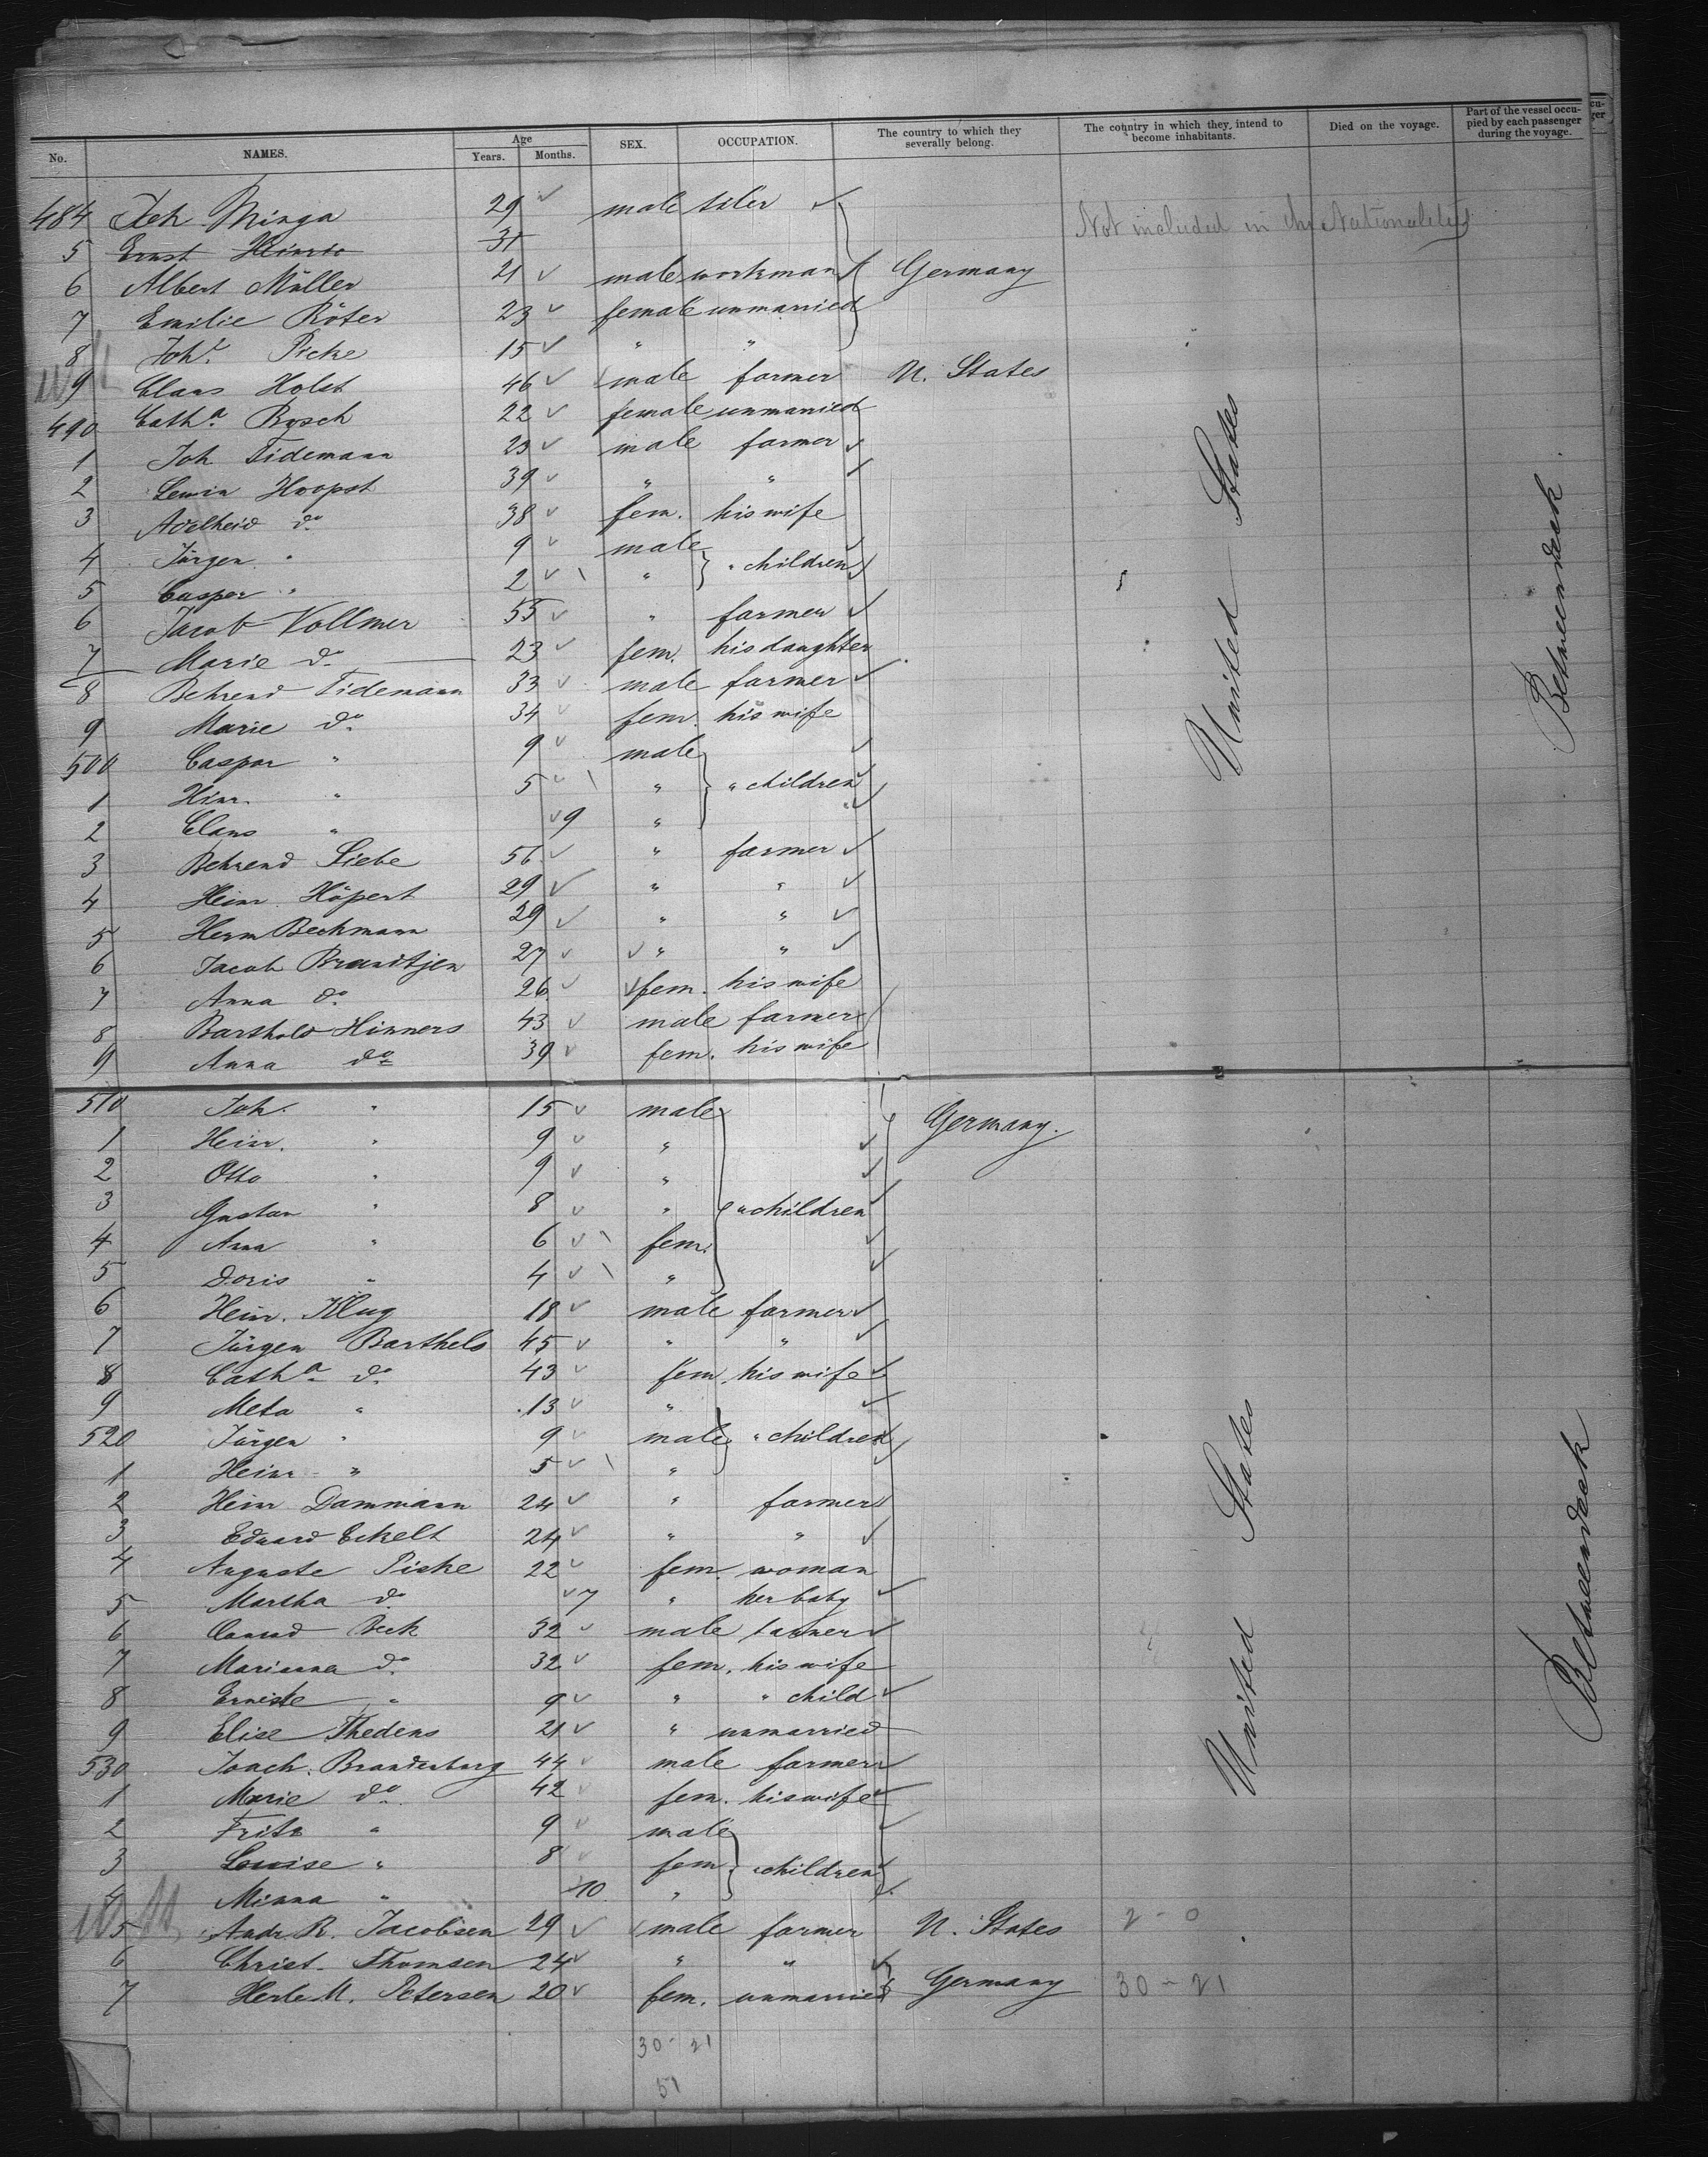 No. NAMES. Age Years. Months. SEX. OCCUPATION. The country to which they severally belong. The country in which they intend to become inhabitants. Died on the voyage. Part of the vessel occupied by each passenger during the voyage.
484 Joh Minga 29 male tiler
Not included in the Nationalities
5 Ernst Heinr 31
6 Albert Müller 21 male workman Germany
7 Emilie Röter 23 female unmarried
8 Joh.ª Picke 15 " "
9 Claus Holst 46 male farmer U. States
490 Cath.ª Bosch 22 female unmarried
1 Joh Tidemann 23 male farmer
2 Lewin Hoopst 39 " "
3 Adelheid do 38 fem. his wife
4 Jürgen " 9 male
5 Casper " 2 " " children
6 Jacob Vollmer 55 " farmer
7 Marie do 23 fem. his daughter
8 Behrend Tidemann 33 male farmer
9 Marie do 34 fem. his wife
500 Caspar " 9 male
1 Hinr. " 5 " " children
2 Claus " 9 " "
3 Behrend Siebe 56 " farmer
4 Heinr. Höpert 29 " "
5 Herm Beckmann 29 " "
6 Jacob Brandtjen 27 " "
7 Anna do 26 fem. his wife
8 Barthold Hinners 43 male farmer
9 Anna do 39 fem. his wife
United States
Betweendeck.
510 Joh. " 15 male Germany.
1 Heinr. " 9 "
2 Otto " 9 "
3 Gustav " 8 " " children
4 Anna " 6 fem.
5 Doris " 4 "
6 Heinr. Klug 18 male farmer
7 Jürgen Barthels 45 " "
8 Cath.ª do 43 fem. his wife
9 Meta " 13 "
520 Jürgen " 9 male " children
1 Heinr " 5 "
2 Heinr Dammann 24 " farmer
3 Eduard Eckelt 24 " "
4 Auguste Picke 22 fem. woman
5 Martha do 7 " her baby
6 Conrad Beck 32 male farmer
7 Marianna do 32 fem. his wife
8 Erneste " 9 " " child
9 Elise Thedens 21 " unmarried
530 Joach. Brandenburg 44 male farmer
1 Marie do 42 fem. his wife
2 Fritz " 9 male
3 Louise " 8 fem " children
4 Minna " 10 "
5 Andr. R. Jacobsen 29 male farmer U. States 2 - 0
6 Christ. Thomsen 24 " "
7 M. Petersen 20 fem. unmarried Germany 30 - 21
United States
Betweendeck
30 - 21
51